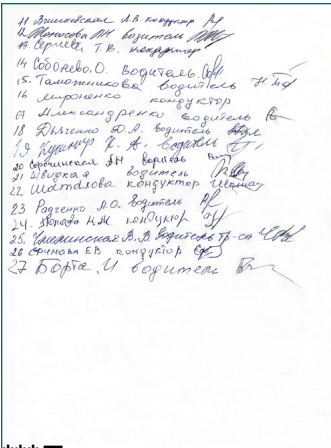 11 Вишневская А.В. кондуктор
12 водитель
13. Сергеева Т.В. кондуктор
14 О. Водитель
15. Таможникова водитель
16 Мироненко кондуктор
17 Александренко водитель
18 Дьяченко Д.А. водитель
19 Кушнир К. А. водитель
20 водитель
21 Швидкая водитель
22 Шаталова кондуктор
23 Радченко А.О. водитель
24. Н.М. кондуктор
25. В.В. водитель тр-са
26 ЕВ кондуктор
27 Борта И водитель